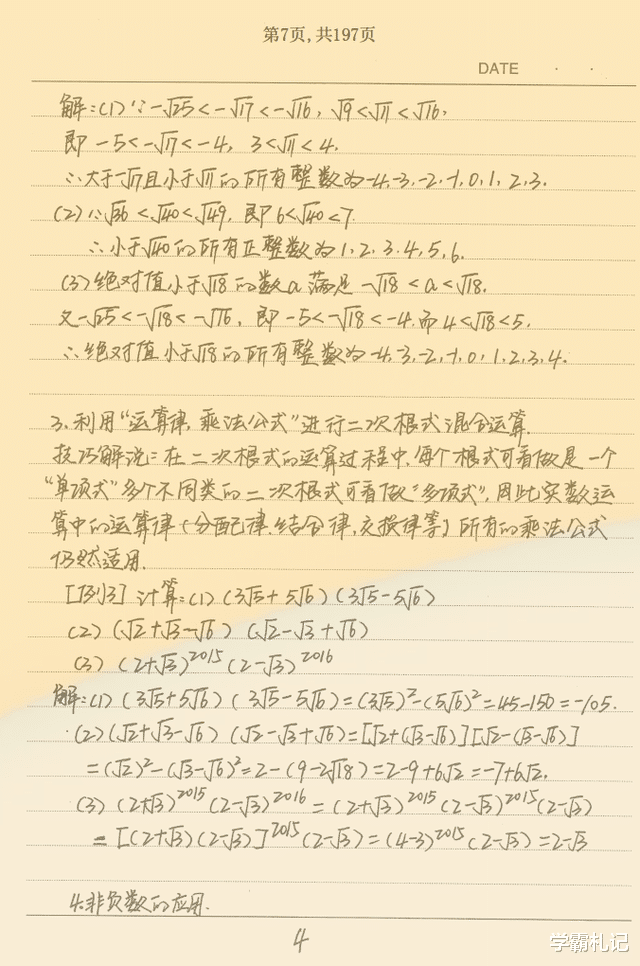 第7页,共197页
DATE · ·
解:(1)∵-√25<-√17<-√16,√9<√11<√16,
即 -5<-√17<-4, 3<√11<4.
∴大于-√17且小于√11的所有整数为-4,-3,-2,-1,0,1,2,3.
(2)∵√36<√40<√49,即6<√40<7.
∴小于√40的所有正整数为1,2,3,4,5,6.
(3)绝对值小于√18的数a满足-√18<a<√18.
又-√25<-√18<-√16,即-5<-√18<-4.而4<√18<5.
∴绝对值小于√18的所有整数为-4,-3,-2,-1,0,1,2,3,4.
3.利用“运算律,乘法公式”进行二次根式混合运算.
技巧解说:在二次根式的运算过程中,每个根式可看做是一个
“单项式”多个不同类的二次根式可看做“多项式”,因此实数运
算中的运算律(分配律,结合律,交换律等)所有的乘法公式
仍然适用.
[例3]计算:(1)(3√5+5√6)(3√5-5√6)
(2)(√2+√3-√6)(√2-√3+√6)
(3)(2+√3)²⁰¹⁵(2-√3)²⁰¹⁶
解:(1)(3√5+5√6)(3√5-5√6)=(3√5)²-(5√6)²=45-150=-105.
(2)(√2+√3-√6)(√2-√3+√6)=[√2+(√3-√6)][√2-(√3-√6)]
=(√2)²-(√3-√6)²=2-(9-2√18)=2-9+6√2=-7+6√2.
(3)(2+√3)²⁰¹⁵(2-√3)²⁰¹⁶=(2+√3)²⁰¹⁵(2-√3)²⁰¹⁵(2-√3)
=[(2+√3)(2-√3)]²⁰¹⁵(2-√3)=(4-3)²⁰¹⁵(2-√3)=2-√3
4.非负数的应用.
4
学霸札记